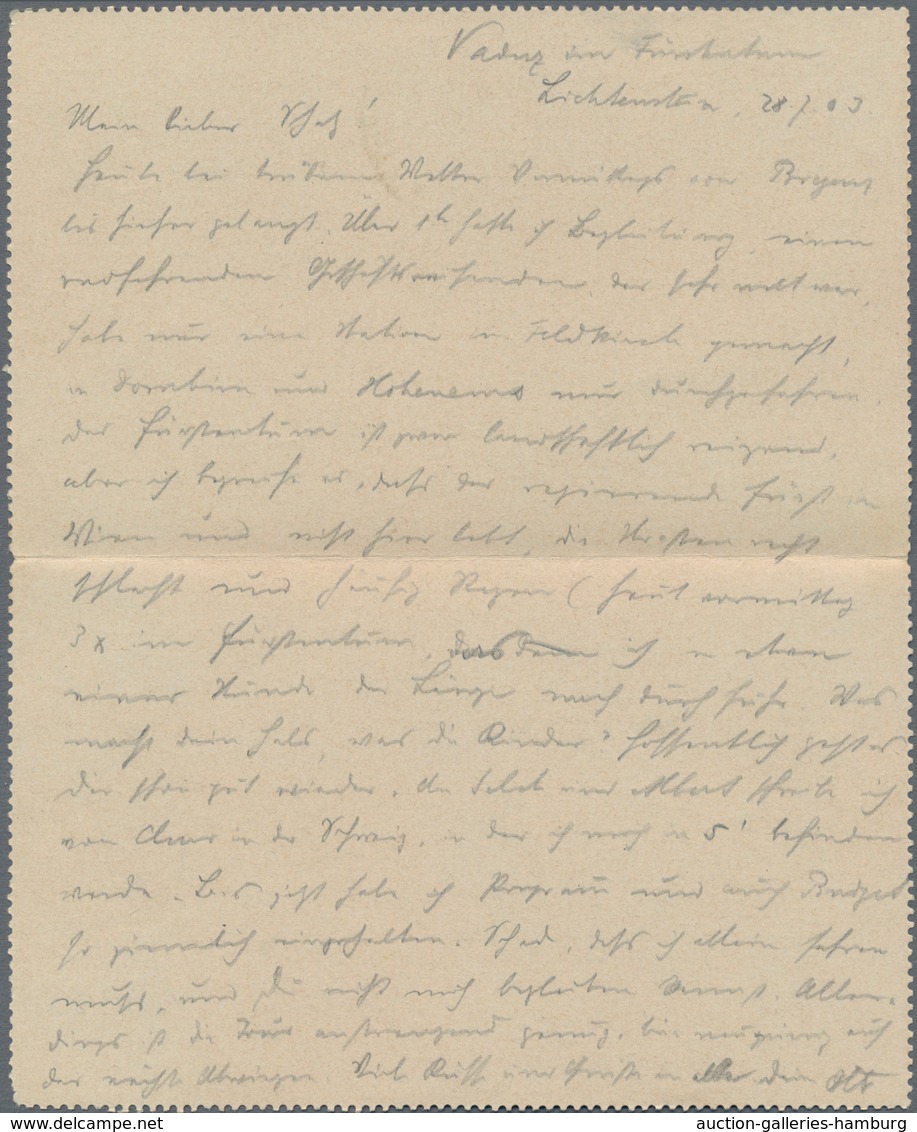 Vaduz im Fürstentum
Lichtenstein, 28.7.03.
Mein lieber Schatz!
Heute bei trübem Wetter Vormittags von Bregenz
bis hieher gelangt. Über 1h hatte ich Begleitung, einen
radfahrenden Geschäftsreisenden, der sehr nett war,
habe nur eine Station in Feldkirch gemacht,
in Dornbirn und Hohenems nur durchgefahren.
Das Fürstentum ist zwar landschaftlich reizend,
aber ich begreife es, dass der regierende Fürst in
Wien und nicht hier lebt, die Strassen recht
schlecht und häufig Regen (heut vormittag
3x im Fürstentum, das ich in etwa
einer Stunde der Länge nach durchfuhr. Was
macht dein Hals, was die Kinder? Hoffentlich geht es
dir schon gut wieder. An und Albert schreibe ich
von Chur in der Schweiz, in der ich mich in 5' befinden
werde. Bis jetzt habe ich Programm und auch Budget
so ziemlich eingehalten. Schad, dass ich allein fahren
muss, und du nicht mich begleiten kannst. Aller-
dings ist die Tour anstrengend genug, bin neugierig auf
das nächste Abwiegen. Viele Küsse und Grüsse an alle dein
auction-galleries-hamburg